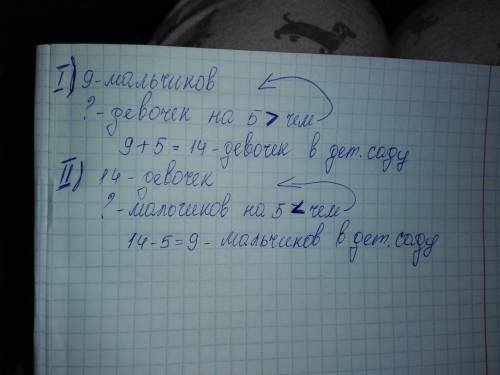 I) 9-мальчиков
?-девочек на 5 > чем
9+5=14-девочек в дет. саду
II) 14-девочек
?-мальчиков на 5 < чем
14-5=9- мальчиков в дет. саду